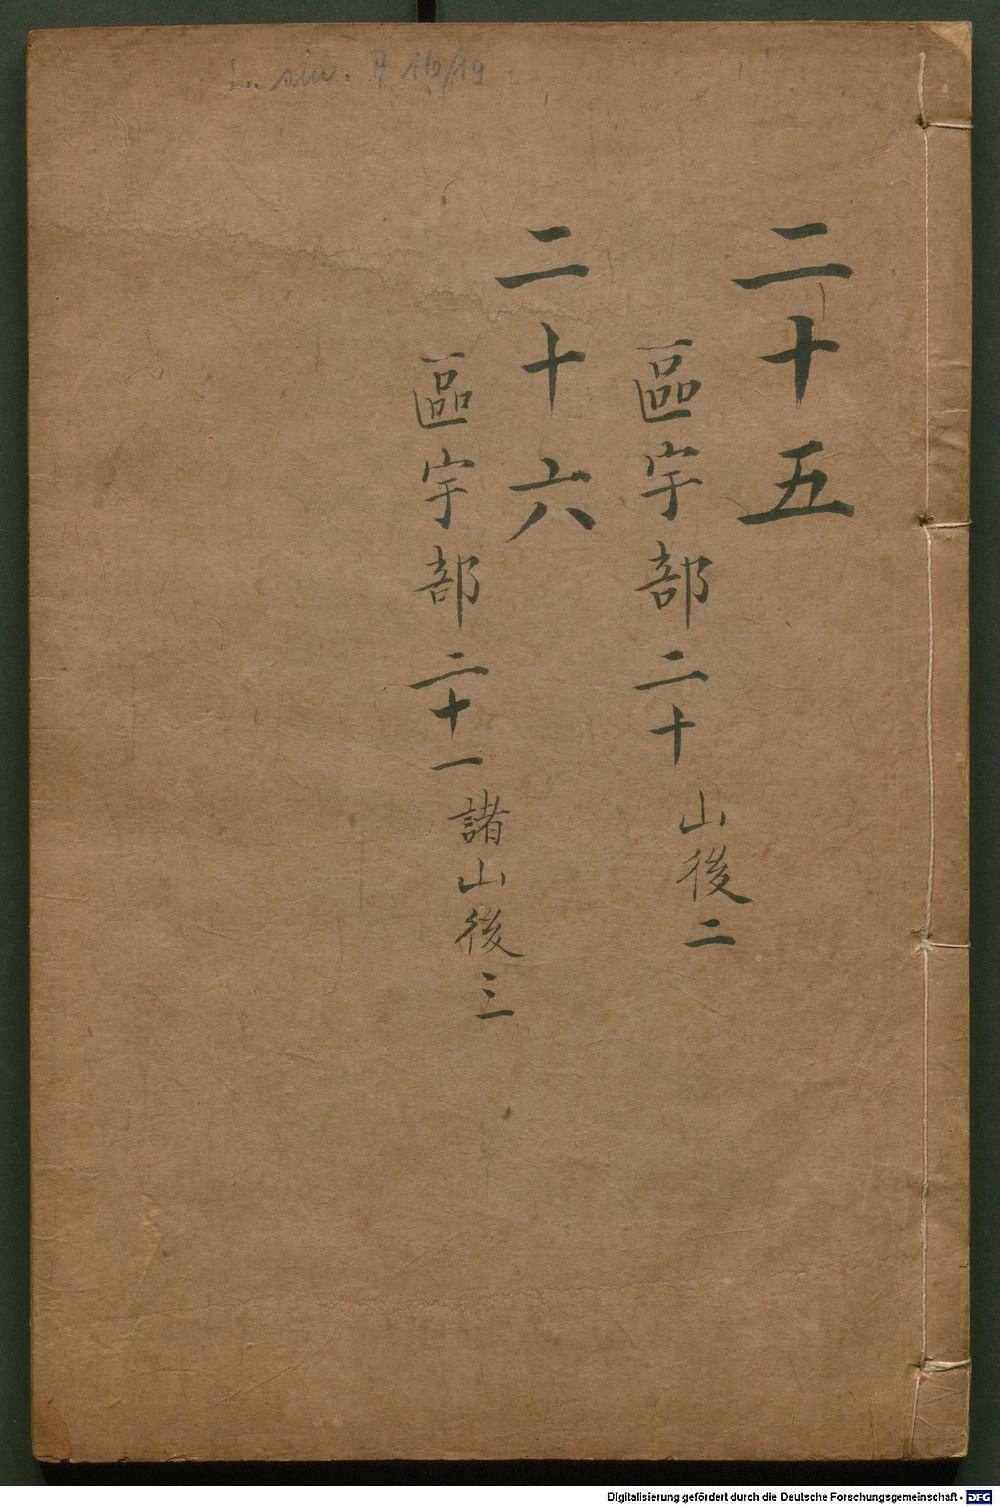 L. sin. A 16/19
二十五
區宇部二十 山後二
二十六
區宇部二十一 諸山後三
Digitalisierung gefördert durch die Deutsche Forschungsgemeinschaft - DFG